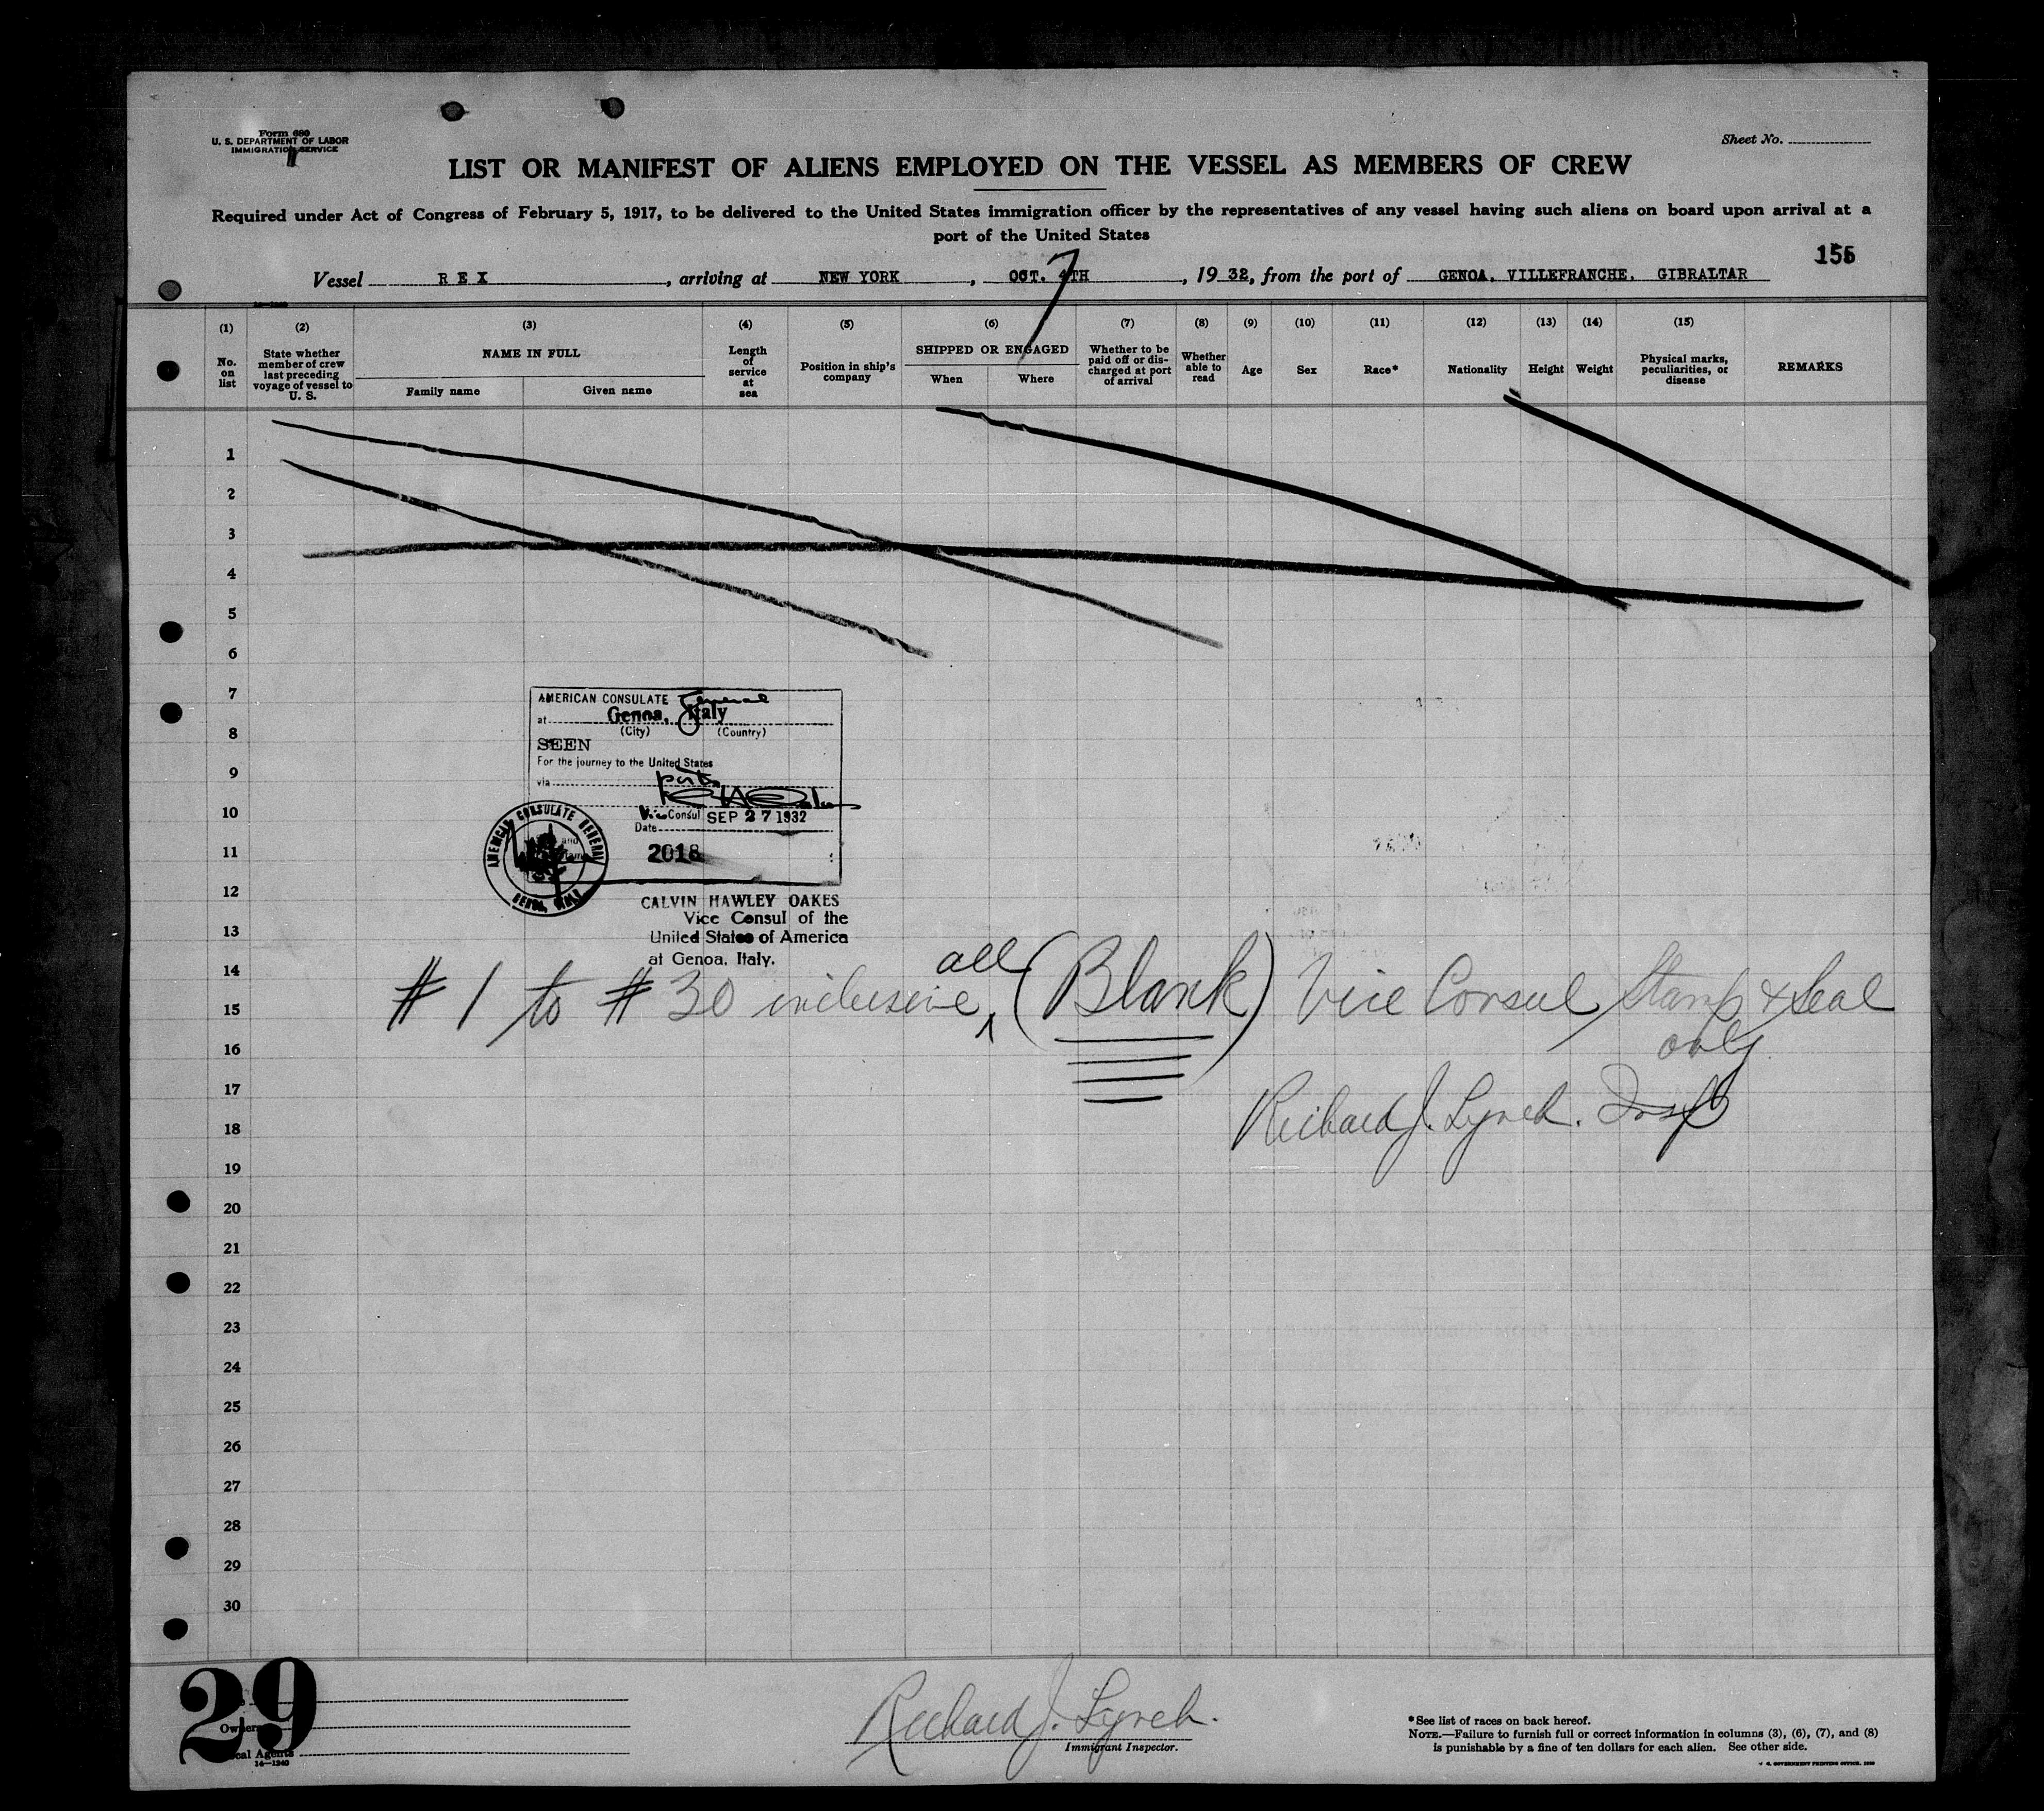 Form 680
U. S. DEPARTMENT OF LABOR
IMMIGRATION SERVICE
Sheet No.
LIST OR MANIFEST OF ALIENS EMPLOYED ON THE VESSEL AS MEMBERS OF CREW
Required under Act of Congress of February 5, 1917, to be delivered to the United States immigration officer by the representatives of any vessel having such aliens on board upon arrival at a
port of the United States
155
Vessel REX, arriving at NEW YORK, OCT. 4TH 7, 1932, from the port of GENOA, VILLEFRANCHE, GIBRALTAR
(1) (2) (3) (4) (5) (6) (7) (8) (9) (10) (11) (12) (13) (14) (15)
No. on list
State whether member of crew last preceding voyage of vessel to U. S.
NAME IN FULL
Family name
Given name
Length of service at sea
Position in ship's company
SHIPPED OR ENGAGED
When
Where
Whether to be paid off or discharged at port of arrival
Whether able to read
Age
Sex
Race*
Nationality
Height
Weight
Physical marks, peculiarities, or disease
REMARKS
1
2
3
4
5
6
7
8
9
10
11
12
13
14
15
16
17
18
19
20
21
22
23
24
25
26
27
28
29
30
AMERICAN CONSULATE General
at Genoa, Italy
(City) (Country)
SEEN
For the journey to the United States
via
Vice Consul
Date SEP 27 1932
2018
AMERICAN CONSULATE GENERAL
GENOA, ITALY
CALVIN HAWLEY OAKES
Vice Consul of the
United States of America
at Genoa, Italy.
# 1 to # 30 inclusive, all (Blank) Vice Consul Stamp & Seal
only
Richard J. Lynch. Insp
29
Owners
Local Agents
14—1240
Richard J. Lynch.
Immigrant Inspector.
*See list of races on back hereof.
NOTE.—Failure to furnish full or correct information in columns (3), (6), (7), and (8)
is punishable by a fine of ten dollars for each alien. See other side.